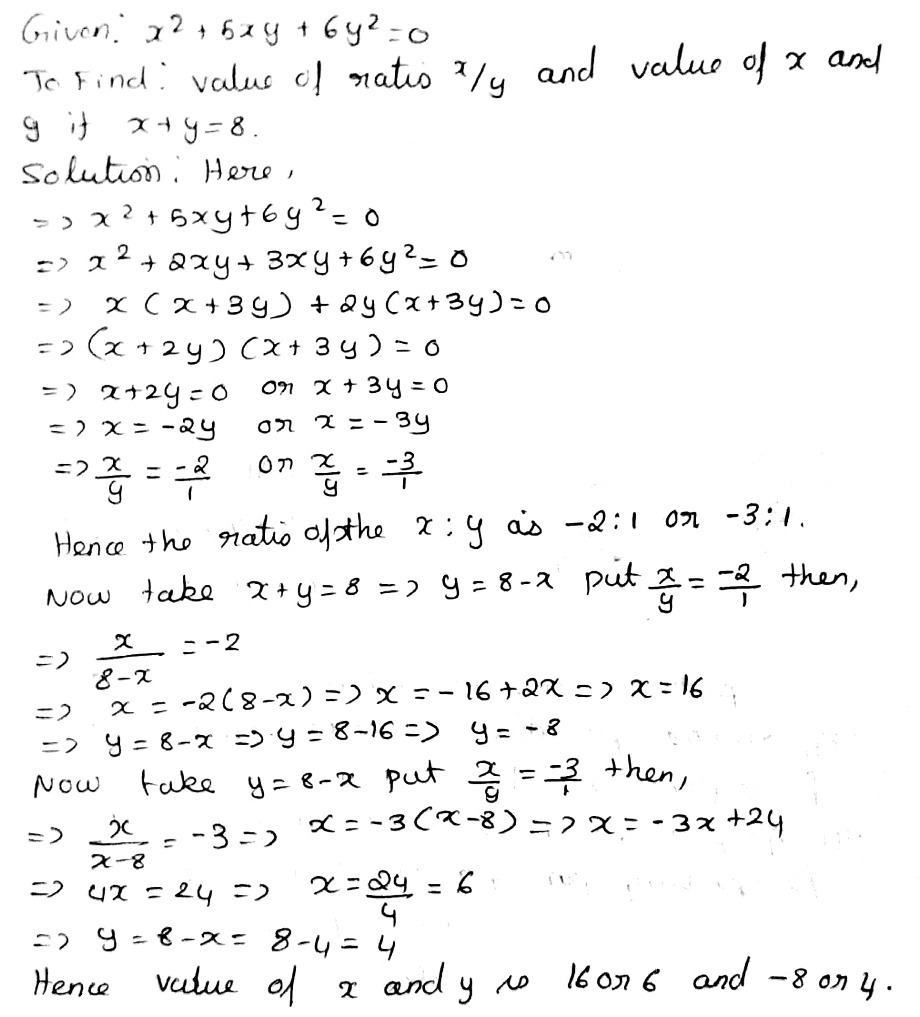 Given: x² + 5xy + 6y² = 0
To Find: value of ratio x/y and value of x and
y if x+y=8.
Solution: Here,
=> x² + 5xy + 6y² = 0
=> x² + 2xy + 3xy + 6y² = 0
=> x(x+3y) + 2y(x+3y) = 0
=> (x+2y)(x+3y) = 0
=> x+2y=0 or x+3y=0
=> x = -2y or x = -3y
=> x/y = -2/1 or x/y = -3/1
Hence the ratio of the x:y is -2:1 or -3:1.
Now take x+y=8 => y=8-x put x/y = -2/1 then,
=> x/(8-x) = -2
=> x = -2(8-x) => x = -16+2x => x=16
=> y=8-x => y=8-16 => y=-8
Now take y=8-x put x/y = -3/1 then,
=> x/(x-8) = -3 => x = -3(x-8) => x = -3x+24
=> 4x = 24 => x = 24/4 = 6
=> y=8-x = 8-4 = 4
Hence value of x and y is 16 or 6 and -8 or 4.